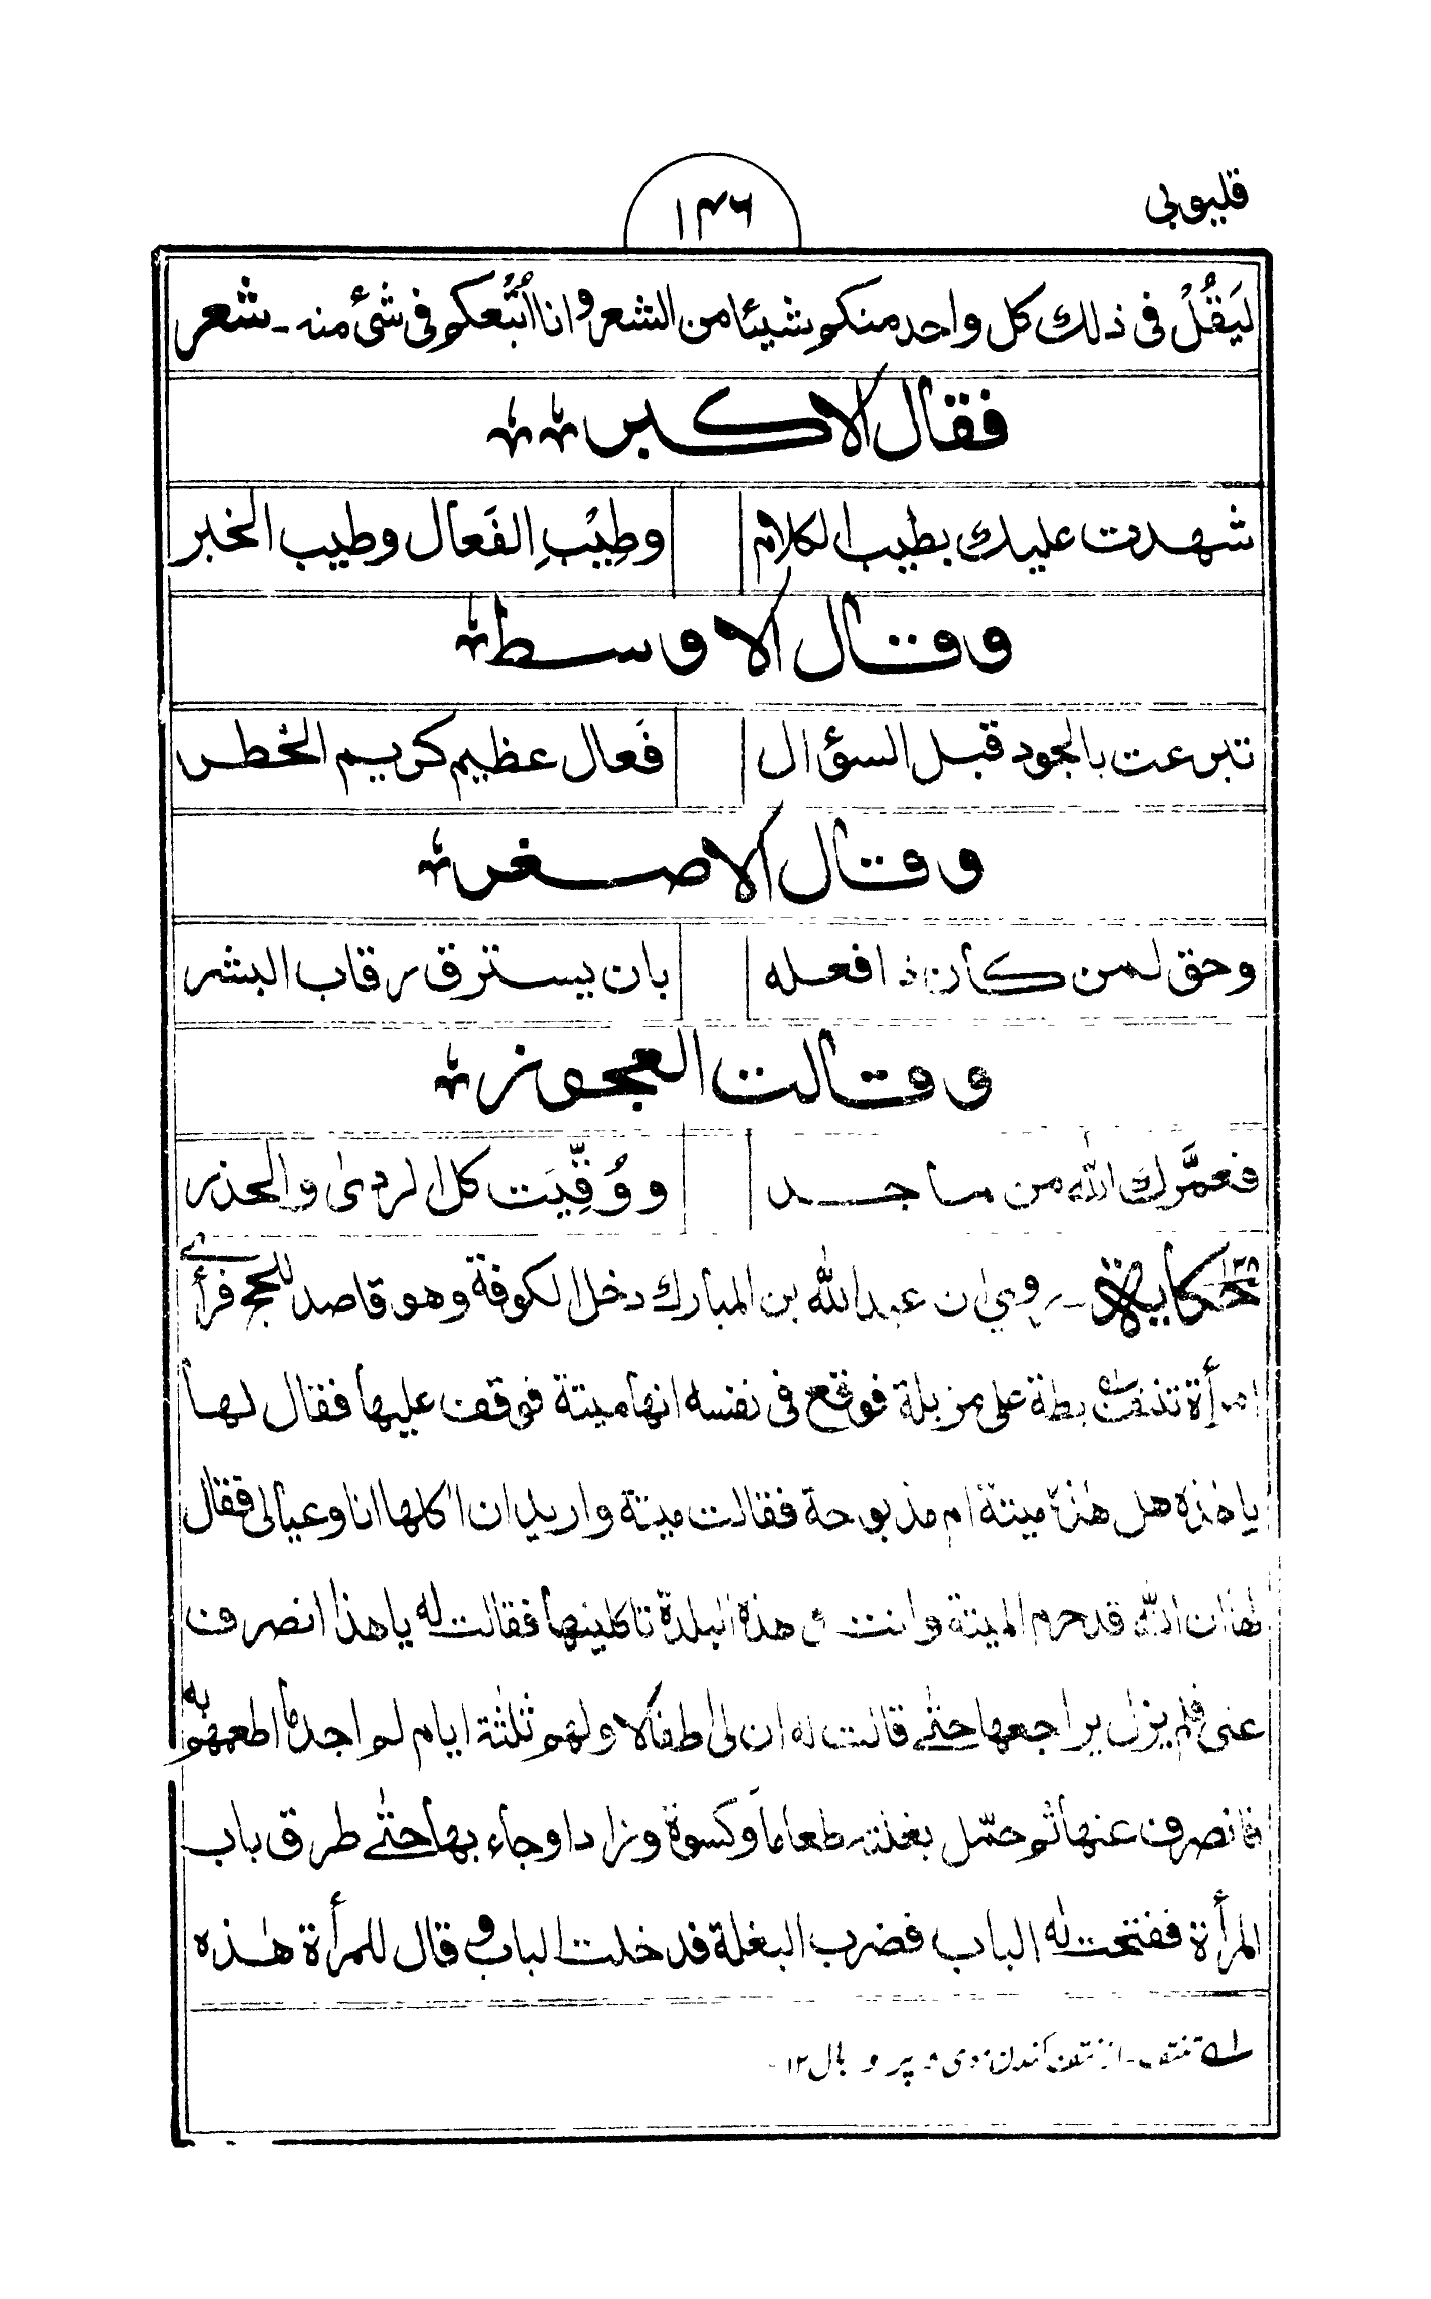 قليوبي
١٣٦
لَيَقُلْ فى ذلك كل واحد منكم شيئا من الشعر و انا اتُبُعكم فى شئ منه ـ شعر
فقال الاكبر
شهدت عليك بطيب الكلام وطِيْبِ الفَعال وطيب الخبر
وقال الاوسط
تبرعت بالجود قبل السؤال فَعال عظيم كريم الخطر
وقال الاصغر
وحق لمن كان ذا فعله بان يسترق رقاب البشر
وقالت العجوز
فعمَّرك الله من ماجد ووُقِّيَت كل الردى والحذر
حكاية ـ روي ان عبد الله بن المبارك دخل الكوفة وهو قاصد للحج فرأى
امرأة تنتف بطة على مزبلة فوقع فى نفسه انها ميتة فوقف عليها فقال لها
يا هٰذه هل هٰذه ميتة ام مذبوحة فقالت ميتة واريد ان اٰكلها انا وعيالى فقال
لها ان الله قد حرم الميتة وانت فى هذه البلدة تاكلينها فقالت له يا هذا انصرف
عنى فلم يزل يراجعها حتى قالت له ان لى اطفالا ولهم ثلثة ايام لم اجد ما اطعمهم به
فانصرف عنها ثم حمّل بغلته طعاما وكسوة وزادا وجاء بها حتى طرق باب
المرأة ففتحت له الباب فضرب البغلة فدخلت الباب و قال للمرأة هٰذه
لـه تنتف ـ از نتف كندن موى و پر و بال ١٢